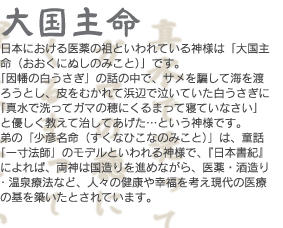 大国主命
日本における医薬の祖といわれている神様は「大国主
命（おおくにぬしのみこと）」です。
「因幡の白うさぎ」の話の中で、サメを騙して海を渡
ろうとし、皮をむかれて浜辺で泣いていた白うさぎに
「真水で洗ってガマの穂にくるまって寝ていなさい」
と優しく教えて治してあげた…という神様です。
弟の「少彦名命（すくなひこなのみこと）」は、童話
「一寸法師」のモデルといわれる神様で、『日本書紀』
によれば、両神は国造りを進めながら、医薬・酒造り
・温泉療法など、人々の健康や幸福を考え現代の医療
の基を築いたとされています。